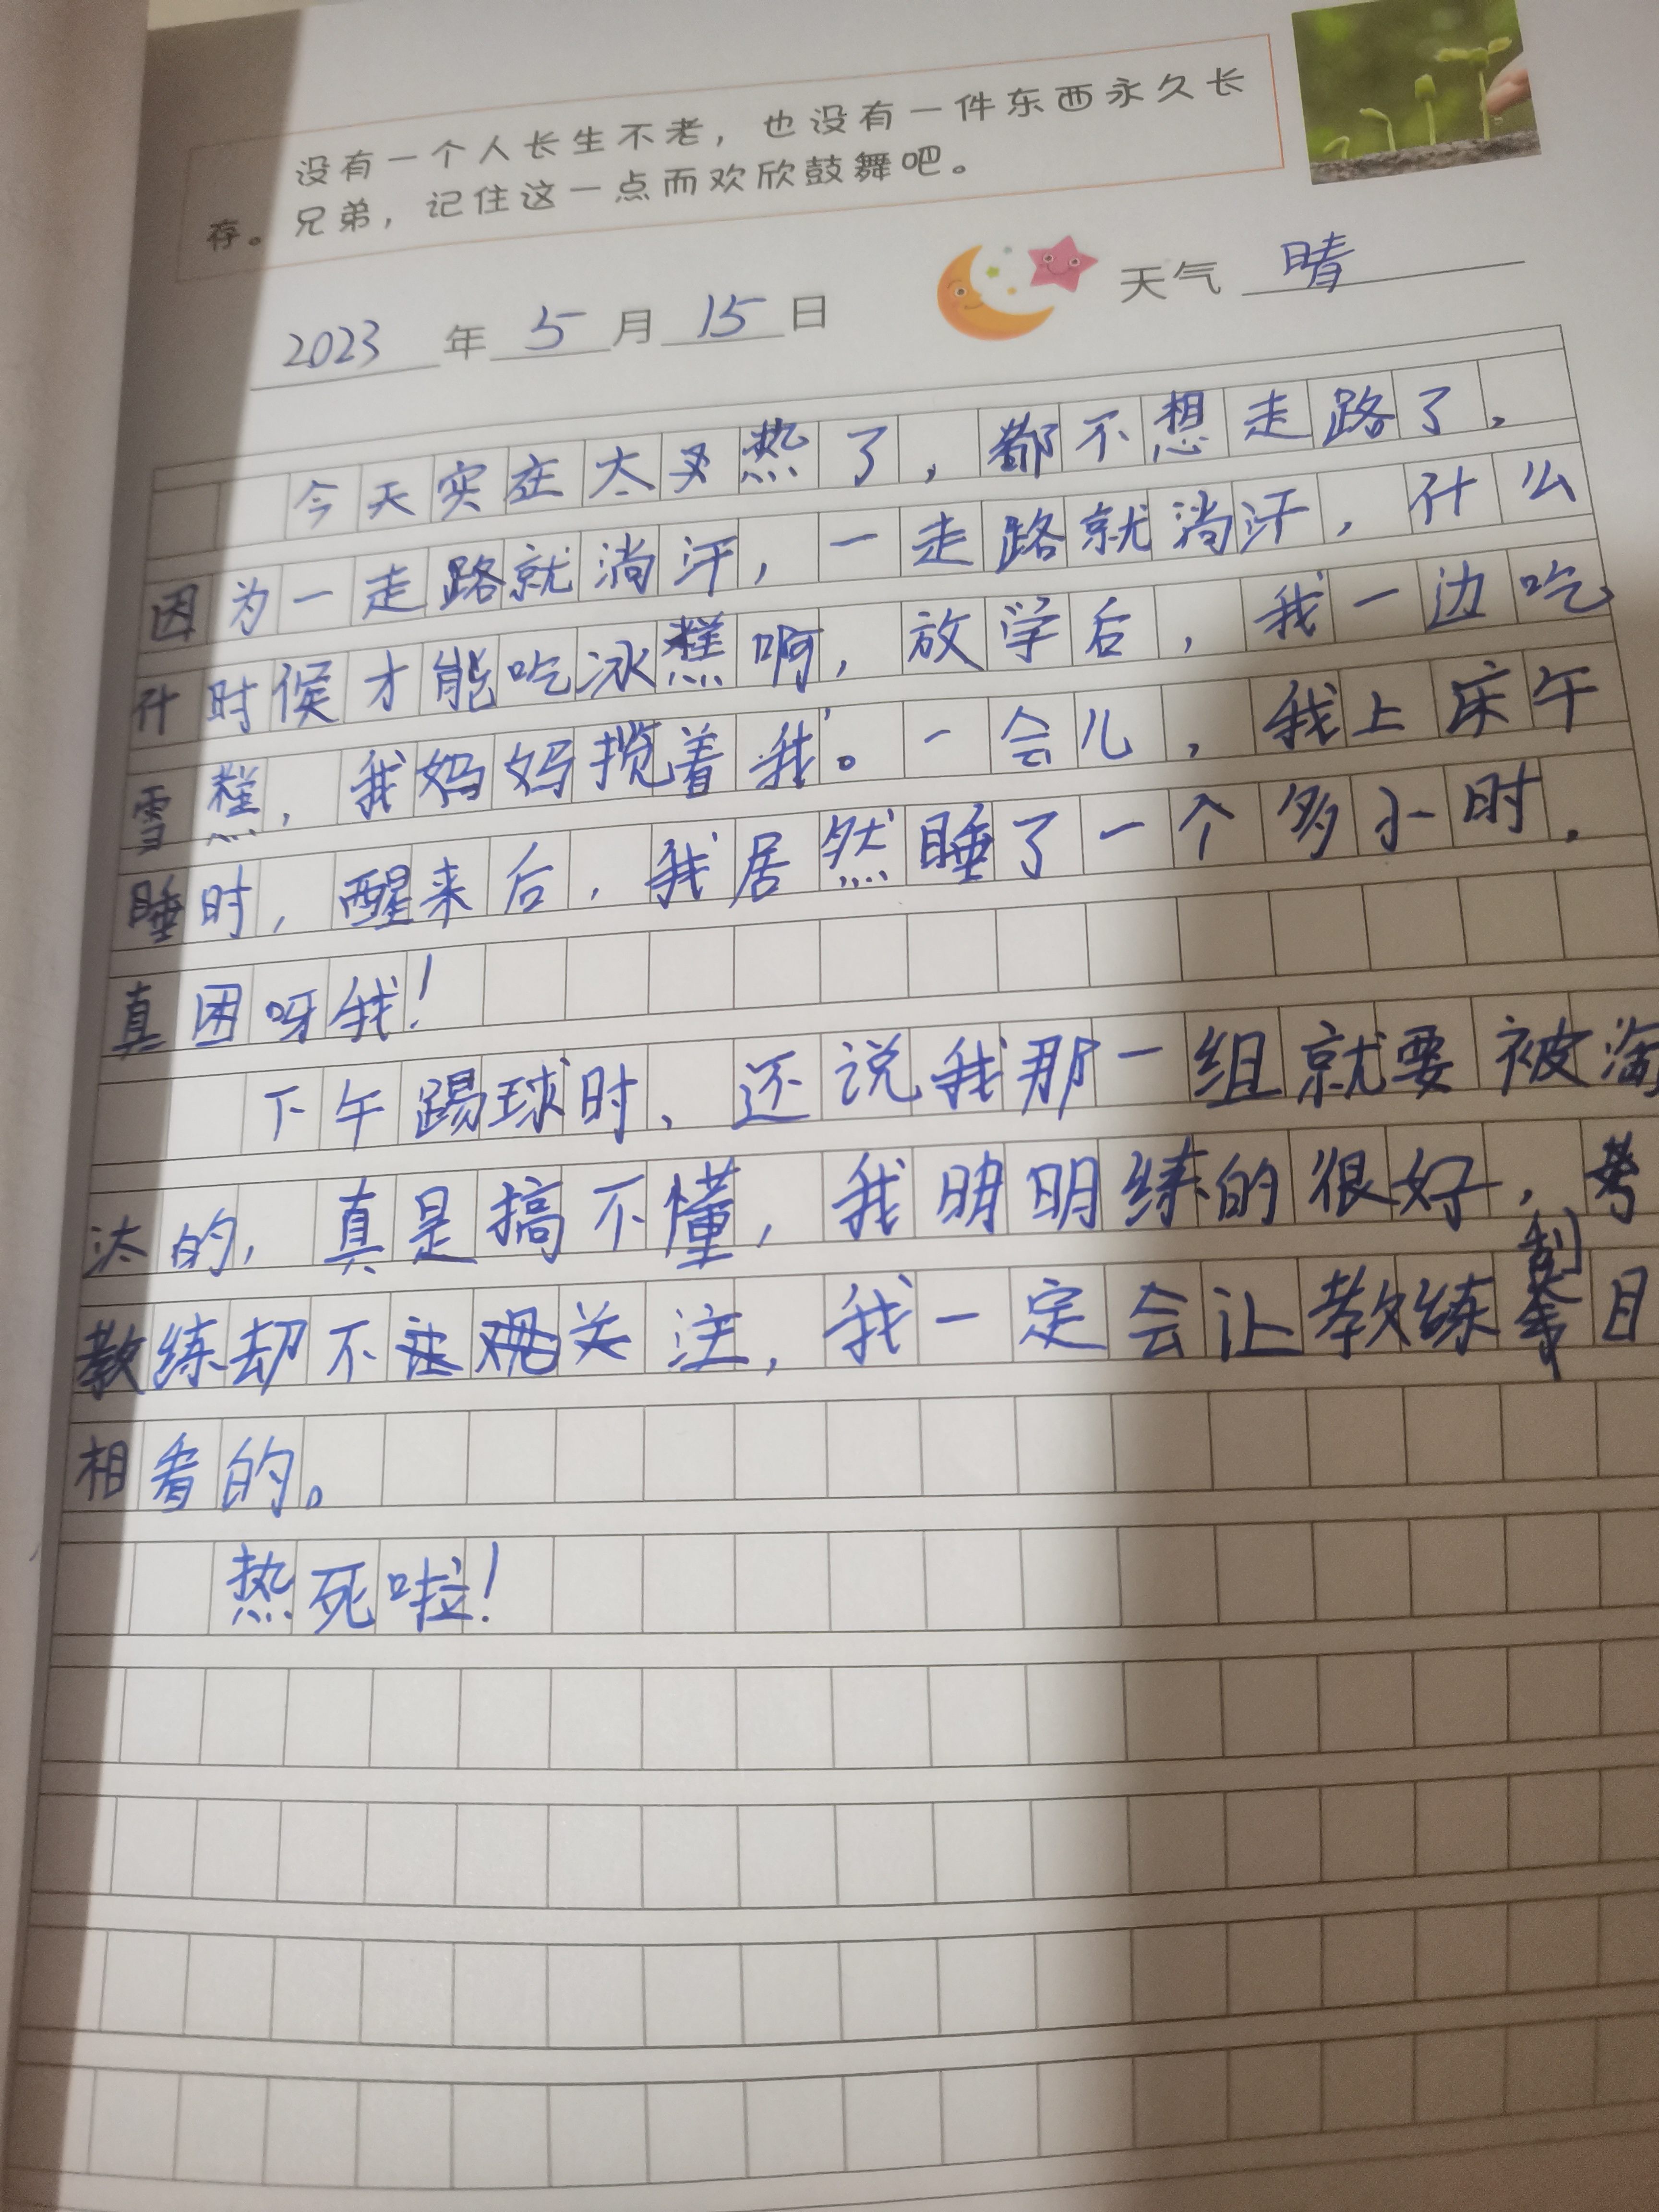 没有一个人长生不老，也没有一件东西永久长
存。兄弟，记住这一点而欢欣鼓舞吧。
2023年5月15日 天气 晴
今天实在太热了，都不想走路了，
因为一走路就淌汗，一走路就淌汗，什么
什时候才能吃冰糕啊，放学后，我一边吃
雪糕，我妈妈搅着我。一会儿，我上床午
睡时，醒来后，我居然睡了一个多小时，
真困呀我！
下午踢球时，还说我那一组就要被淘
汰的，真是搞不懂，我明明练的很好，
教练却不关注，我一定会让教练刮目
相看的。
热死啦！